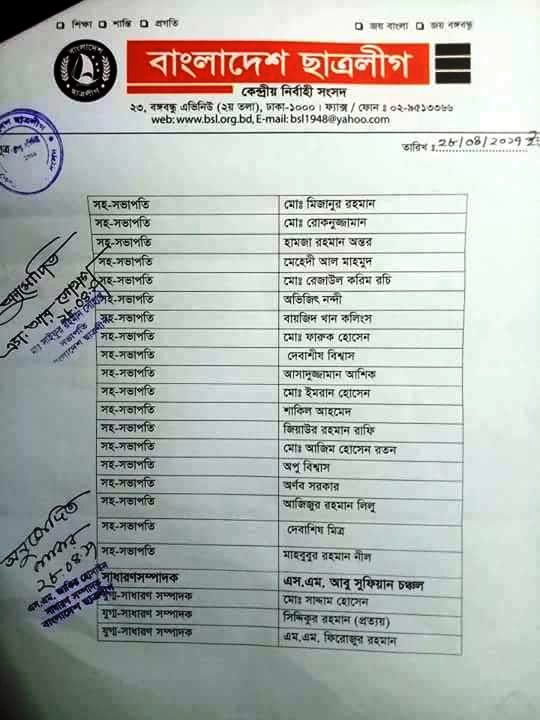 ❑ শিক্ষা ❑ শান্তি ❑ প্রগতি
❑ জয় বাংলা ❑ জয় বঙ্গবন্ধু
বাংলাদেশ ছাত্রলীগ
কেন্দ্রীয় নির্বাহী সংসদ
২৩, বঙ্গবন্ধু এভিনিউ (২য় তলা), ঢাকা-১০০০। ফ্যাক্স / ফোন ঃ ০২-৯৫১৩৩৬৬
web: www.bsl.org.bd, E-mail: bsl1948@yahoo.com
তারিখ ঃ ২৮/০৪/২০১৭
সহ-সভাপতি মোঃ মিজানুর রহমান
সহ-সভাপতি মোঃ রোকনুজ্জামান
সহ-সভাপতি হামজা রহমান অন্তর
সহ-সভাপতি মেহেদী আল মাহমুদ
সহ-সভাপতি মোঃ রেজাউল করিম রচি
সহ-সভাপতি অভিজিৎ নন্দী
সহ-সভাপতি বায়জিদ খান কলিংস
সহ-সভাপতি মোঃ ফারুক হোসেন
সহ-সভাপতি দেবাশীষ বিশ্বাস
সহ-সভাপতি আসাদুজ্জামান আশিক
সহ-সভাপতি মোঃ ইমরান হোসেন
সহ-সভাপতি শাকিল আহমেদ
সহ-সভাপতি জিয়াউর রহমান রাফি
সহ-সভাপতি মোঃ আজিম হোসেন রতন
সহ-সভাপতি অপু বিশ্বাস
সহ-সভাপতি অর্ণব সরকার
সহ-সভাপতি আজিজুর রহমান লিলু
সহ-সভাপতি দেবাশিষ মিত্র
সহ-সভাপতি মাহবুবুর রহমান নীল
সাধারণসম্পাদক এস.এম. আবু সুফিয়ান চঞ্চল
যুগ্ম-সাধারণ সম্পাদক মোঃ সাদ্দাম হোসেন
যুগ্ম-সাধারণ সম্পাদক সিদ্দিকুর রহমান (প্রত্যয়)
যুগ্ম-সাধারণ সম্পাদক এম.এম. ফিরোজুর রহমান
মোঃ সাইফুর রহমান সোহাগ
সভাপতি
বাংলাদেশ ছাত্রলীগ
অনুমোদিত
২৮.০৪.১৭
এস.এম. জাকির হোসাইন
সাধারণ সম্পাদক
বাংলাদেশ ছাত্রলীগ